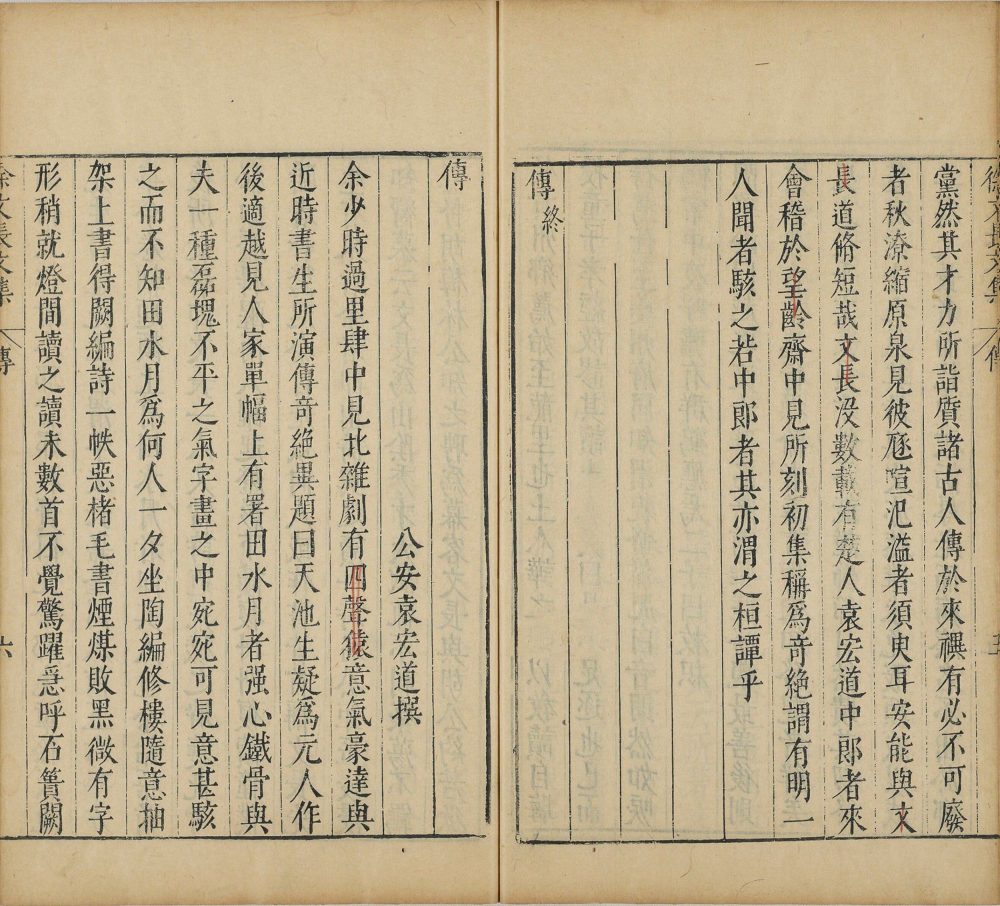 徐文長文集 傳 五
黨然其才力所詣質諸古人傳於來禩有必不可廢
者秋潦縮原泉見彼豗喧汜溢者須臾耳安能與文
長道脩短哉文長没數載有楚人袁宏道中郎者來
會稽於望齡齋中見所刻初集稱爲竒絶謂有明一
人聞者駭之若中郎者其亦渭之桓譚乎
傳終
傳
公安袁宏道撰
余少時過里肆中見北雜劇有四聲猿意氣豪達與
近時書生所演傳竒絶異題曰天池生凝爲元人作
後適越見人家單幅上有署田水月者强心鐵骨與
夫一種磊塊不平之氣字畫之中宛宛可見意甚駭
之而不知田水月爲何人一夕坐陶編修樓隨意抽
架上書得闕編詩一帙惡楮毛書煙煤敗黑微有字
形稍就燈間讀之讀未數首不覺驚躍急呼石簣闕
徐文長文集 傳 六